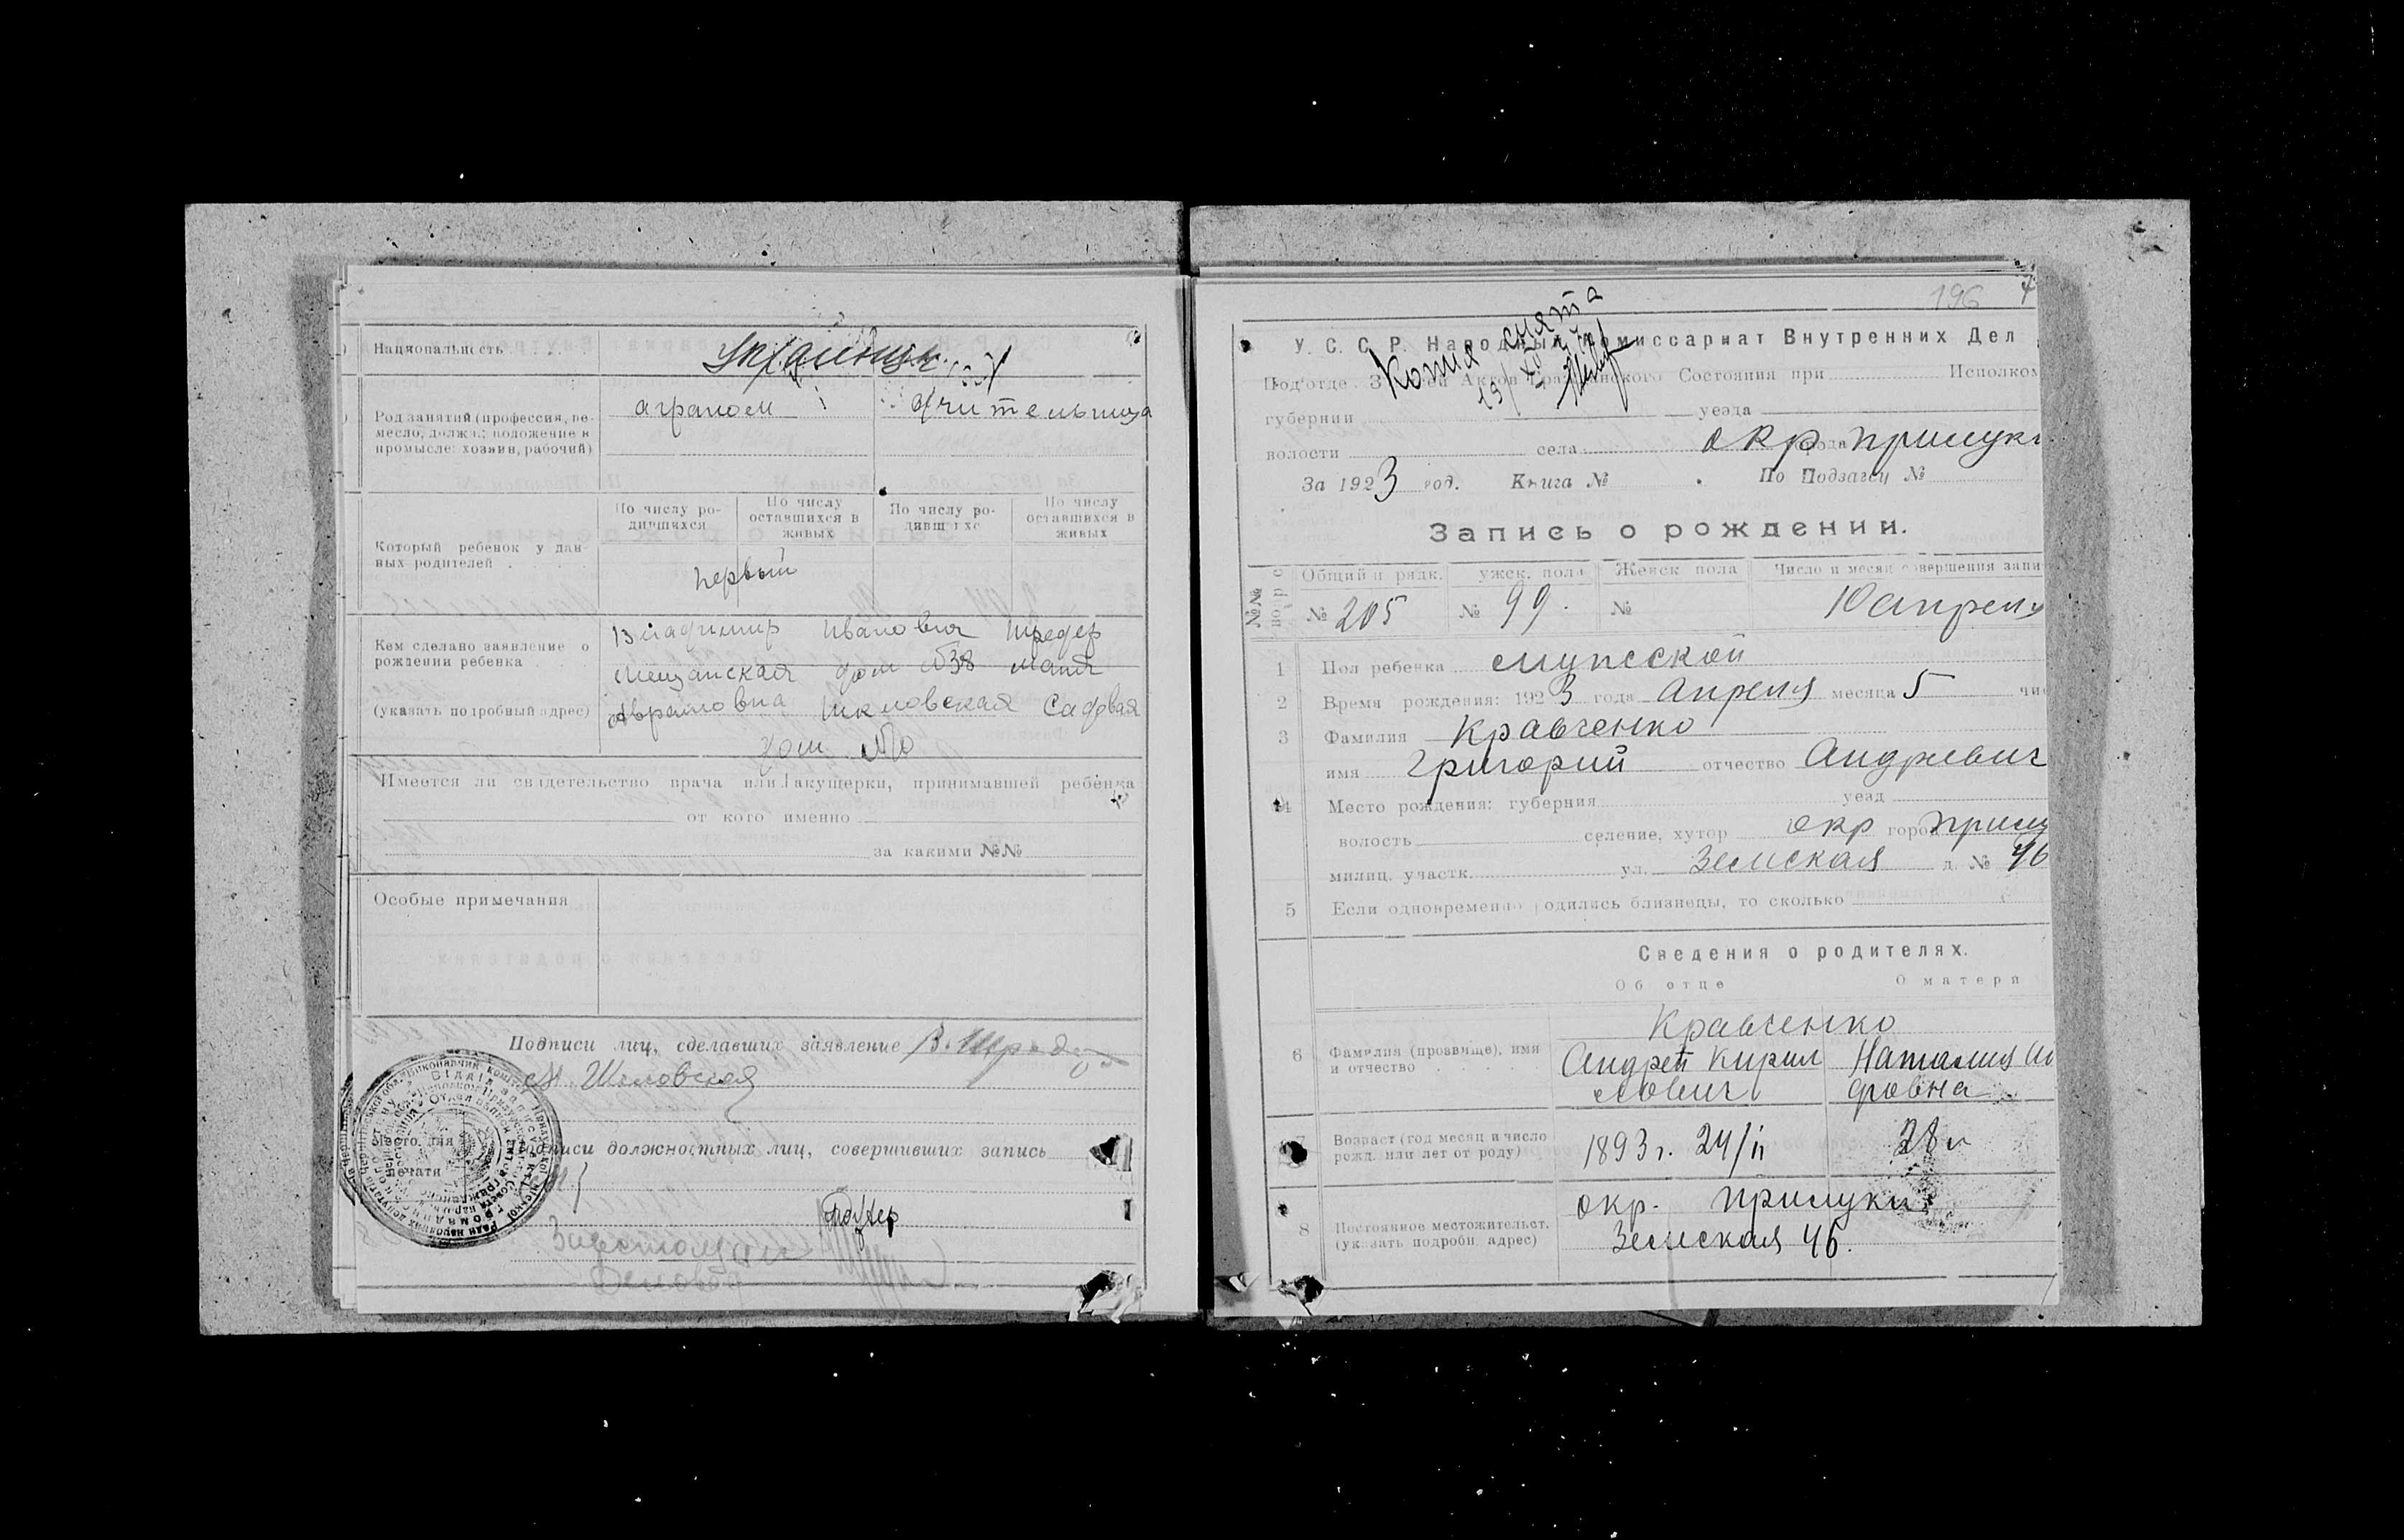 Национальность
украинцы
Род занятий (профессия, ре-
месло, должн.; положение в
промысле: хозяин, рабочий)
аграном
учительница
Который ребенок у дан-
ных родителей
По числу ро-
дившихся
По числу
оставшихся в
живых
По числу ро-
дившихс
По числу
оставшихся в
живых
первый
Кем сделано заявление о
рождении ребенка
(указать подробный адрес)
Владимир Иванович Шредер
Мещанская дом №38 Мания
Аврамовна Шкловская Садовая
дом №
Имеется ли свидетельство врача или акушерки, принимавшей ребенка
от кого именно
за какими №№
Особые примечания
Подписи лиц, сделавших заявление В. Шредер
М. Шкловская
Место для
печати
Подписи должностных лиц, совершивших запись
196
Копия снята
19/XII
У. С. С. Р. Народный Комиссариат Внутренних Дел
Подотде Записей Актов Гражданского Состояния при Исполком
губернии уезда
волости села города окр Прилуки
За 1923 год. Книга № По Подзагсу №
Запись о рождении.
№№ по р с
Общий п рядк. ужск. пола Женск пола Число и месяц совершения запи
№ 205 № 99. № 10 апреля
1 Пол ребенка мужской
2 Время рождения: 1923 года Апреля месяца 5 чис
3 Фамилия Кравченко
имя Григорий отчество Андреевич
4 Место рождения: губерния уезд
волость селение, хутор окр город Прилу
милиц. участк. ул. Земская д. № 46
5 Если одновременно родились близнецы, то сколько
Сведения о родителях.
Об отце О матери
Кравченко
6 Фамилия (прозвище), имя
и отчество
Андрей Кирил
лович
Наталия
7 Возраст (год месяц и число
рожд. или лет от роду)
1893 г. 24/II
28 л
8 Постоянное местожительст.
(указать подробн. адрес)
окр. Прилуки
Земская 46.